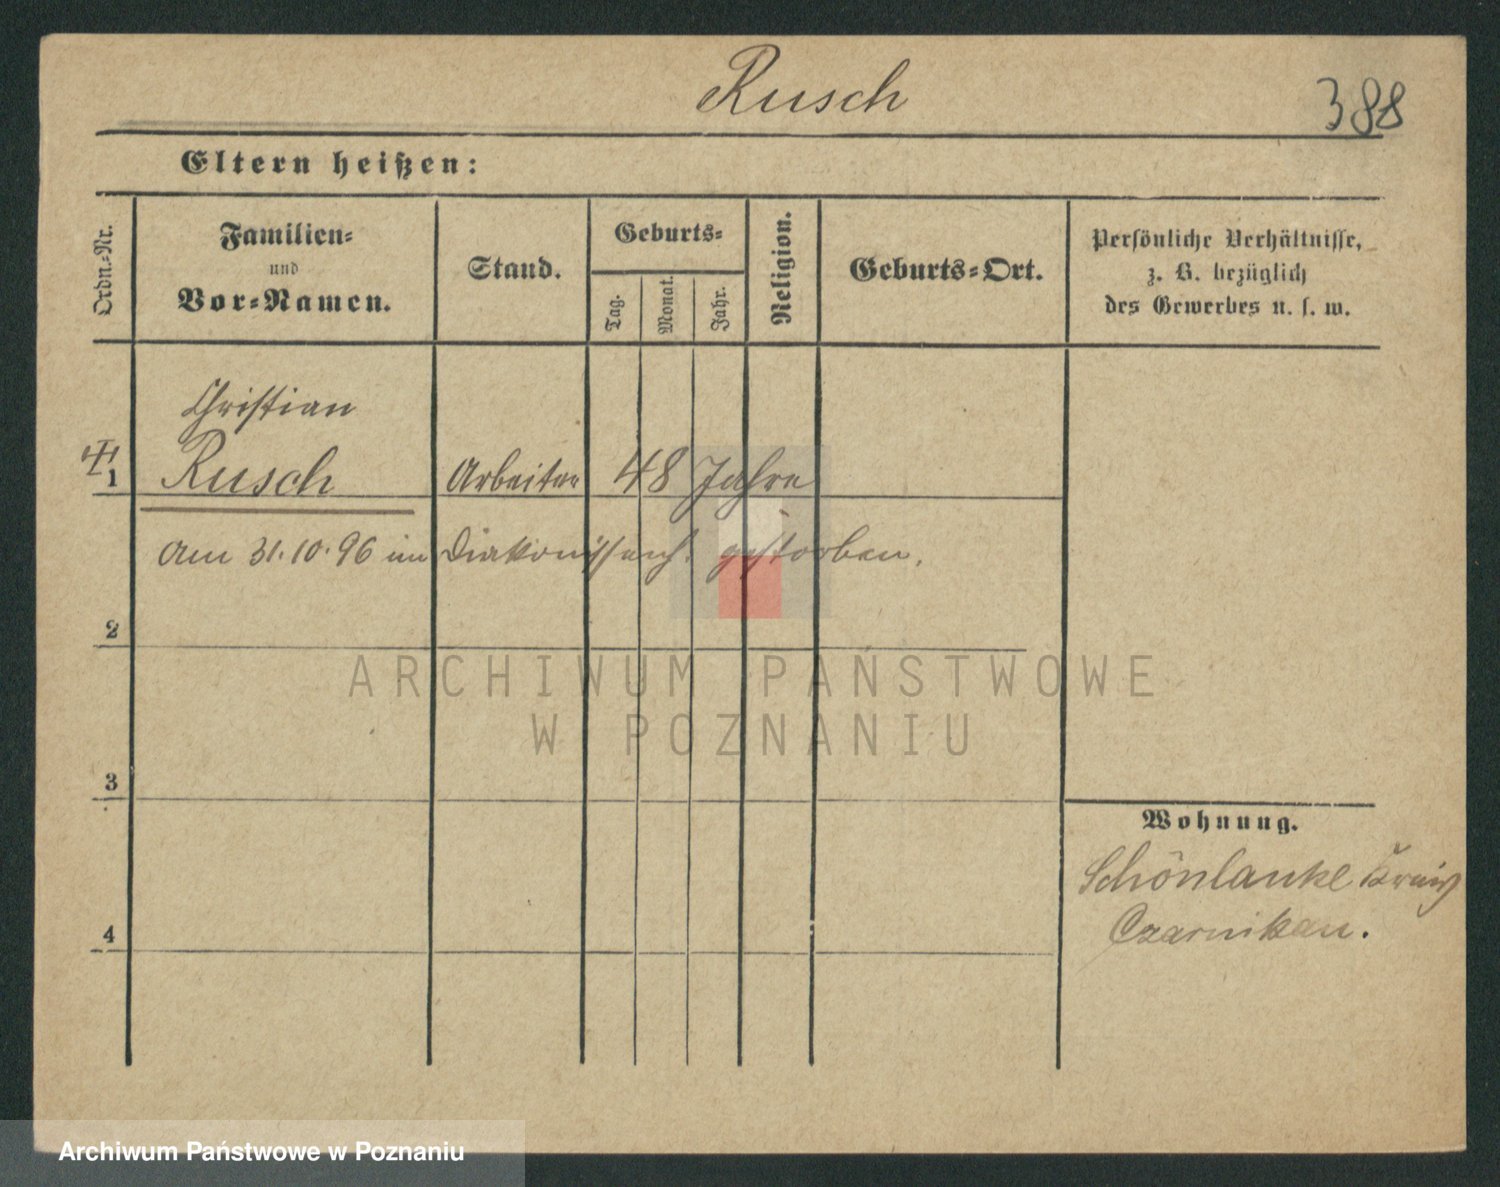 Rusch
388
Eltern heißen:
Ordn.-Nr.
Familien-
und
Vor-Namen.
Stand.
Geburts-
Tag.
Monat.
Jahr.
Religion.
Geburts-Ort.
Persönliche Verhältnisse,
z. B. bezüglich
des Gewerbes u. s. w.
Christian
1 Rusch Arbeiter 48 Jahre
am 31.10.96 im Diakonissenh. gestorben.
2
ARCHIWUM PAŃSTWOWE
W POZNANIU
3
Wohnung.
Schönlanke Kreis
Czarnikau.
4
Archiwum Państwowe w Poznaniu